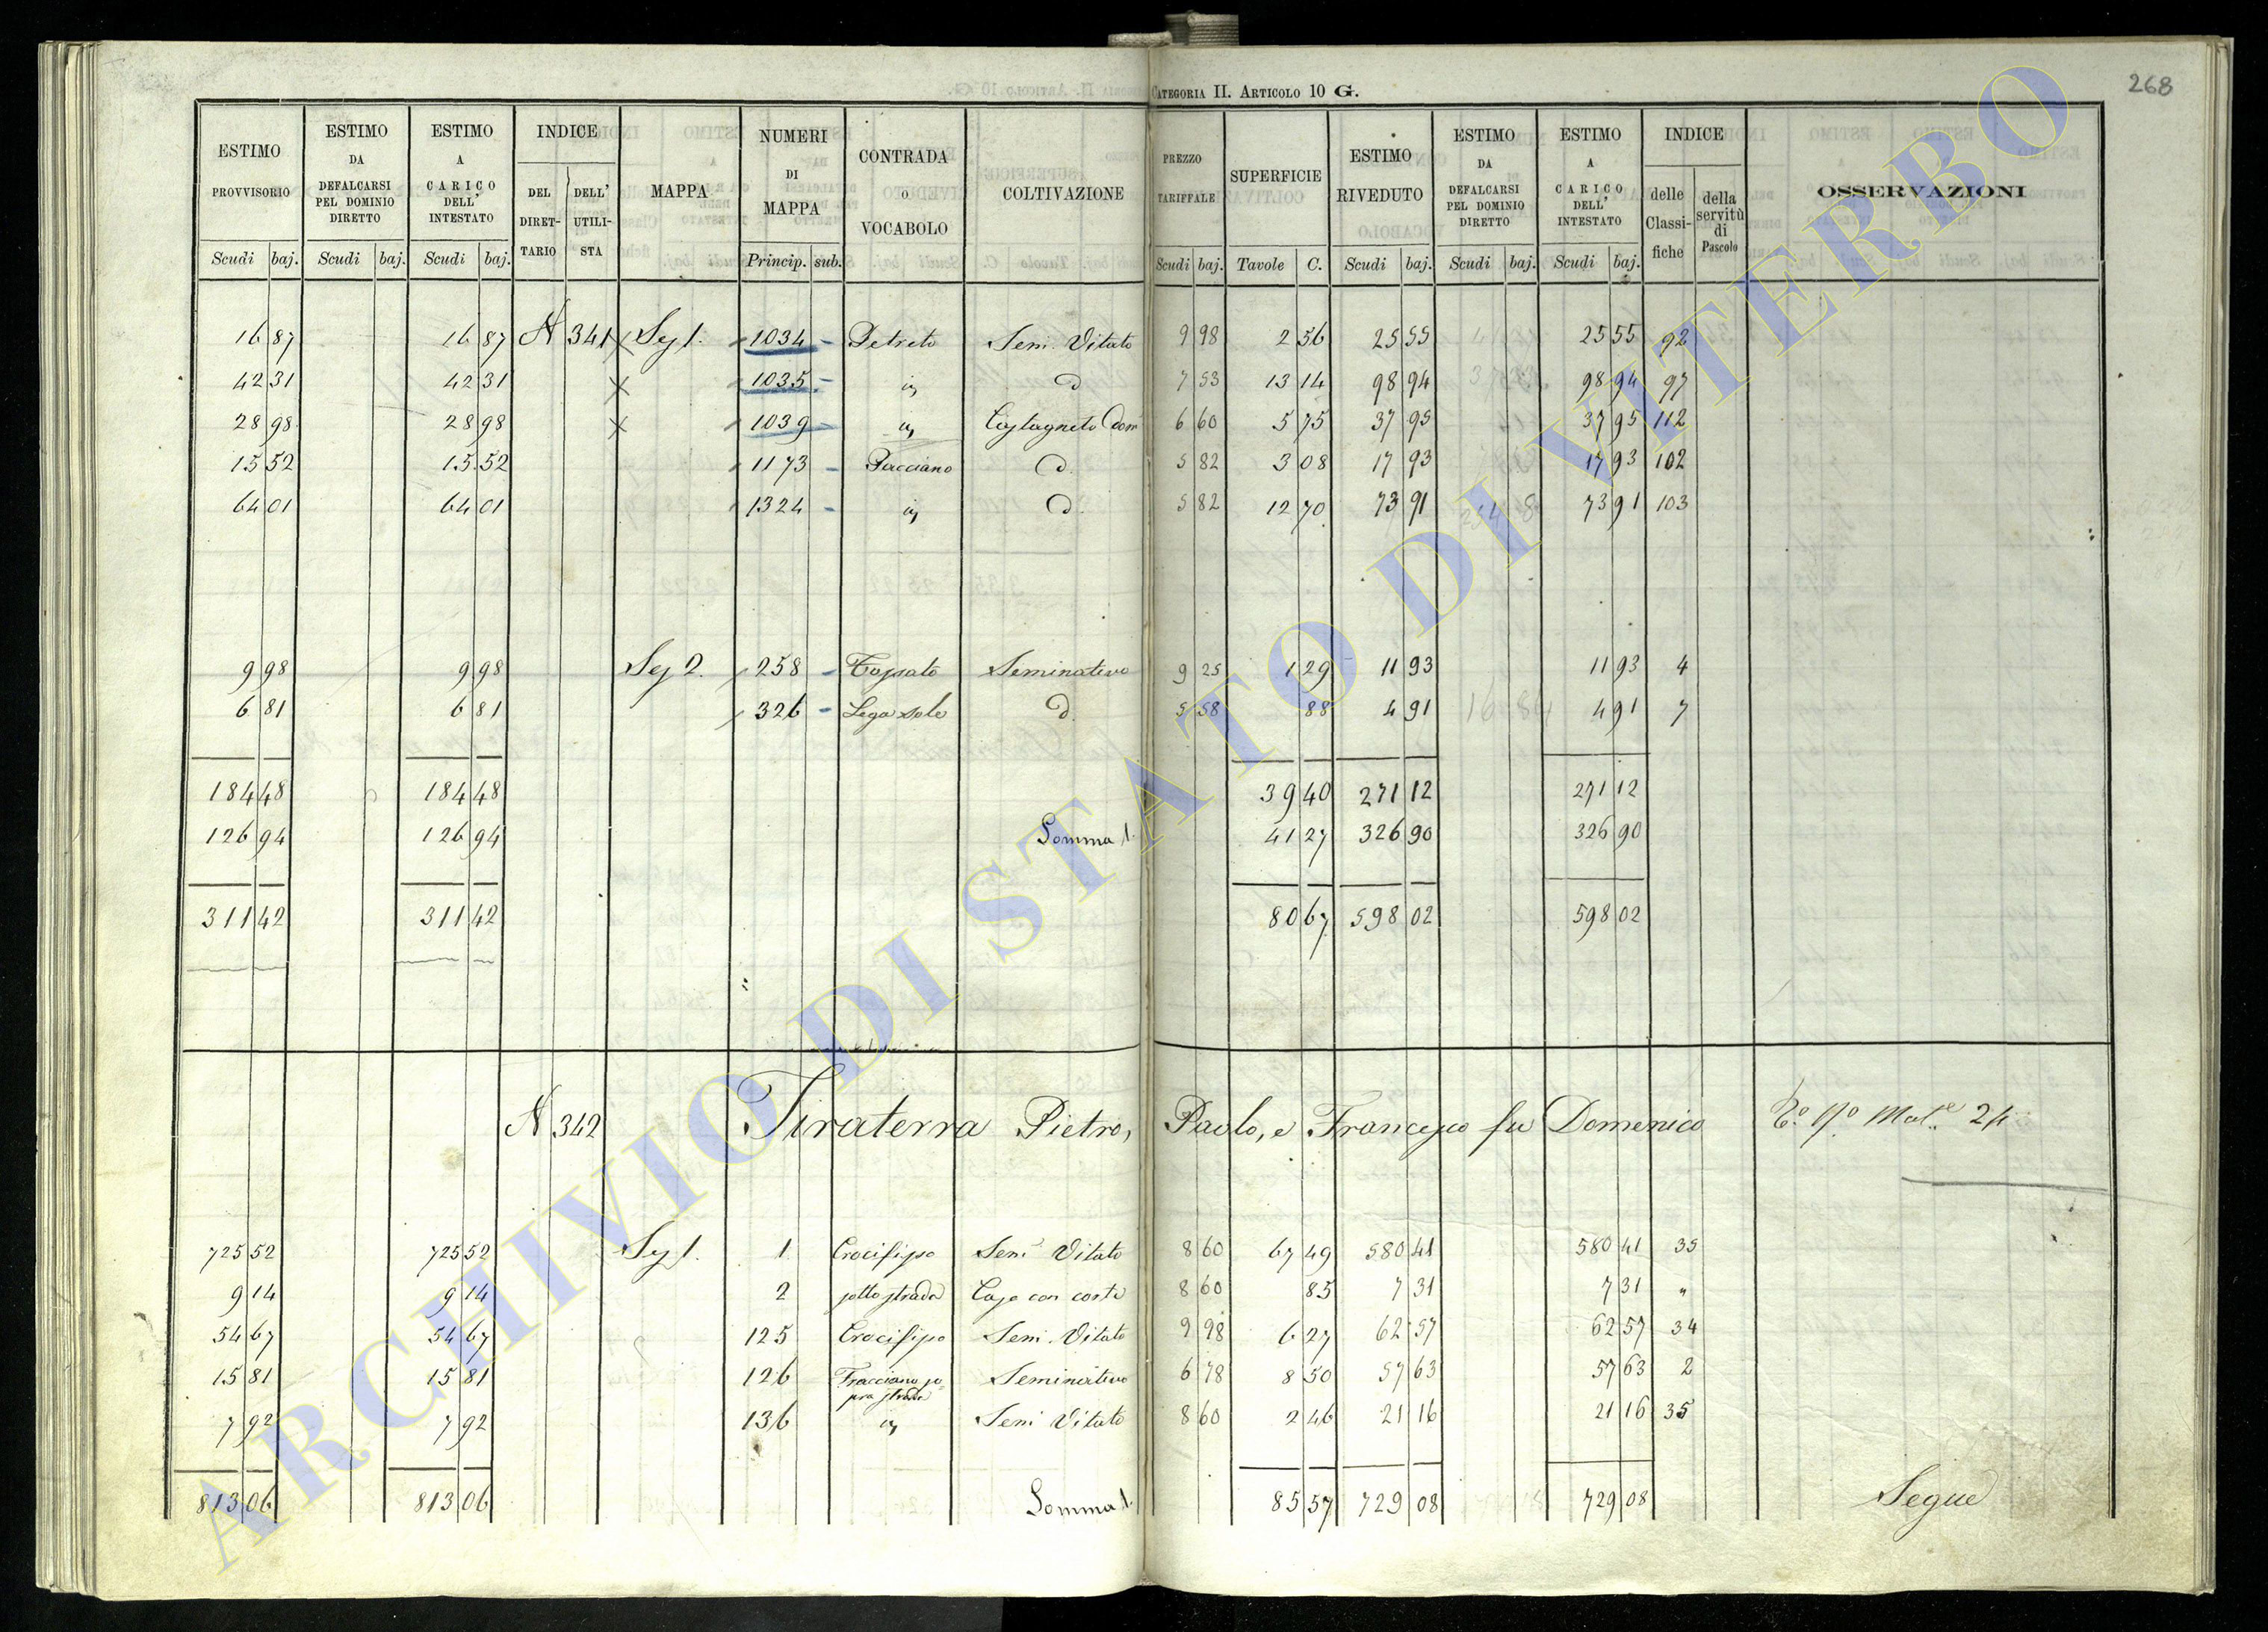 CATEGORIA II. ARTICOLO 10 G.
268
ESTIMO PROVVISORIO Scudi baj.
ESTIMO DA DEFALCARSI PEL DOMINIO DIRETTO Scudi baj.
ESTIMO A CARICO DELL' INTESTATO Scudi baj.
INDICE DEL DIRET-TARIO DELL' UTILI-STA
MAPPA
NUMERI DI MAPPA Princip. sub.
CONTRADA o VOCABOLO
COLTIVAZIONE
PREZZO TARIFFALE Scudi baj.
SUPERFICIE Tavole C.
ESTIMO RIVEDUTO Scudi baj.
ESTIMO DA DEFALCARSI PEL DOMINIO DIRETTO Scudi baj.
ESTIMO A CARICO DELL' INTESTATO Scudi baj.
INDICE delle Classi-fiche della servitù di Pascolo
OSSERVAZIONI
16 87 16 87 N 341 Sez 1. 1034 Petreto Sem. Vitato 9 98 2 56 25 55 25 55 92
42 31 42 31 1035 id d 7 53 13 14 98 94 98 94 97
28 98 28 98 1039 id Castagneto Dom 6 60 5 75 37 95 37 95 112
15 52 15 52 1173 d. 5 82 3 08 17 93 17 93 102
64 01 64 01 1324 id d. 5 82 12 70 73 91 73 91 103
9 98 9 98 Sez 2. 258 Seminativo 9 25 1 29 11 93 11 93 4
6 81 6 81 326 d. 5 58 88 4 91 4 91 7
184 48 184 48 39 40 271 12 271 12
126 94 126 94 Somma 1. 41 27 326 90 326 90
311 42 311 42 80 67 598 02 598 02
N 342 Tiraterra Pietro, Paolo, e Francesco fu Domenico 24
725 52 725 52 Sez 1. 1 Crocifisso Sem Vitato 8 60 67 49 580 41 580 41 35
9 14 9 14 2 sotto strada Casa con corte 8 60 85 7 31 7 31 "
54 67 54 67 125 Crocifisso Sem. Vitato 9 98 6 27 62 57 62 57 34
15 81 15 81 126 Fracciano so-
pra strada Seminativo 6 78 8 50 57 63 57 63 2
7 92 7 92 136 id Sem Vitato 8 60 2 46 21 16 21 16 35
813 06 813 06 Somma 1. 85 57 729 08 729 08 Segue
ARCHIVIO DI STATO DI VITERBO